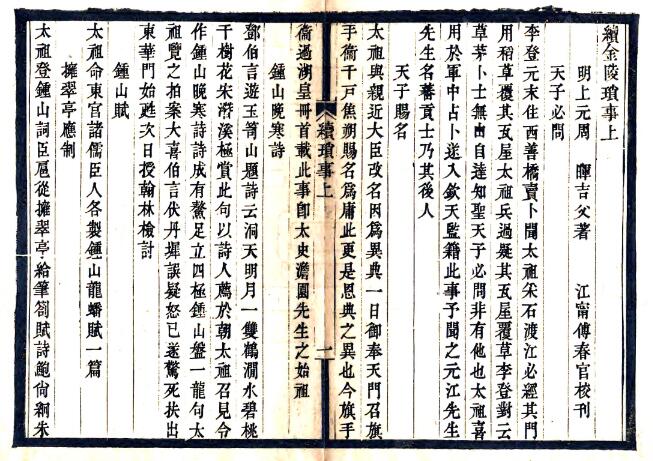 續金陵瑣事上
明上元周　暉吉父著　　江甯傅春官校刊
天子必問
李登元末住西善橋賣卜聞太祖采石渡江必經其門
用稻草覆其瓦屋太祖兵過疑其瓦屋覆草李登對云
草茅卜士無由自達知聖天子必問非有他也太祖喜
用於軍中占卜送入欽天監籍此事予聞之元江先生
先生名蕃貢士乃其後人
天子賜名
太祖與親近大臣改名因爲異典一日御奉天門召旗
手衞千戸焦朔賜名爲庸此更是恩典之異也今旗手
續瑣事上
一
衞過湖皇冊首載此事卽太史澹園先生之始祖
鍾山晚寒詩
鄧伯言遊玉笥山題詩云洞天明月一雙鶴澗水碧桃
千樹花宋潛溪極賞此句以詩人薦於朝太祖召見令
作鍾山晚寒詩詩成有鰲足立四極鍾山盤一龍句太
祖覽之拍案大喜伯言伏丹墀誤疑怒已遂驚死扶出
東華門始甦次日授翰林檢討
鍾山賦
太祖命東宮諸儒臣人各製鍾山龍蟠賦一篇
擁翠亭應制
太祖登鍾山詞臣扈從擁翠亭給筆劄賦詩鮑尙絅朱